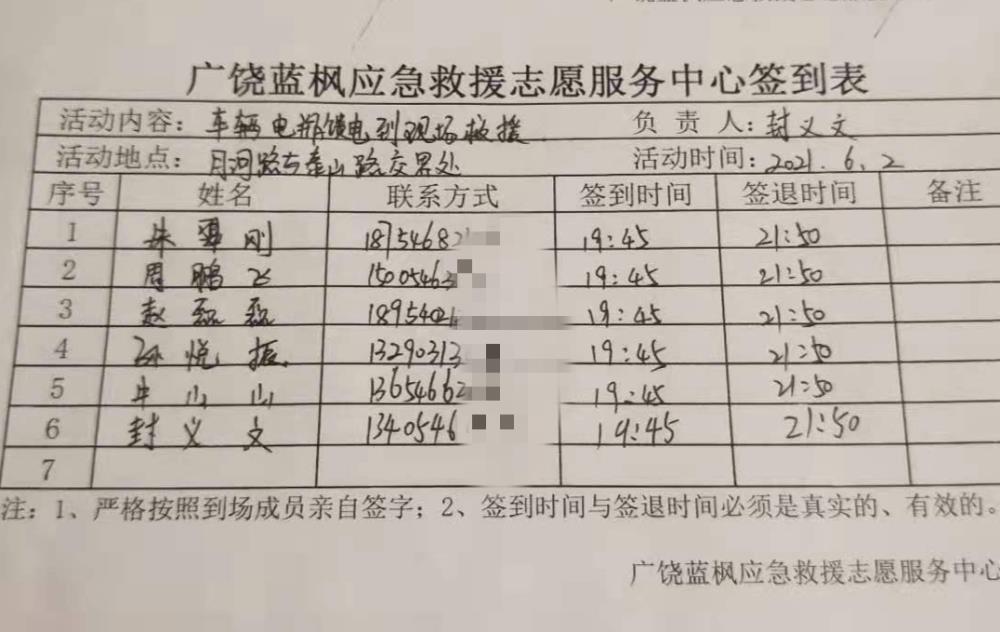 广饶蓝枫应急救援志愿服务中心签到表
活动内容：车辆电瓶馈电到现场救援 负责人：封义文
活动地点：月河路与泰山路交界处 活动时间：2021.6.2
序号 姓名 联系方式 签到时间 签退时间 备注
1 刚 18754682 19:45 21:50
2 周鹏飞 15005463 19:45 21:50
3 赵磊磊 1895402 19:45 21:50
4 孙悦振 13290313 19:45 21:50
5 牛山山 13654662 19:45 21:50
6 封义文 1340546 19:45 21:50
7
注：1、严格按照到场成员亲自签字；2、签到时间与签退时间必须是真实的、有效的。
广饶蓝枫应急救援志愿服务中心